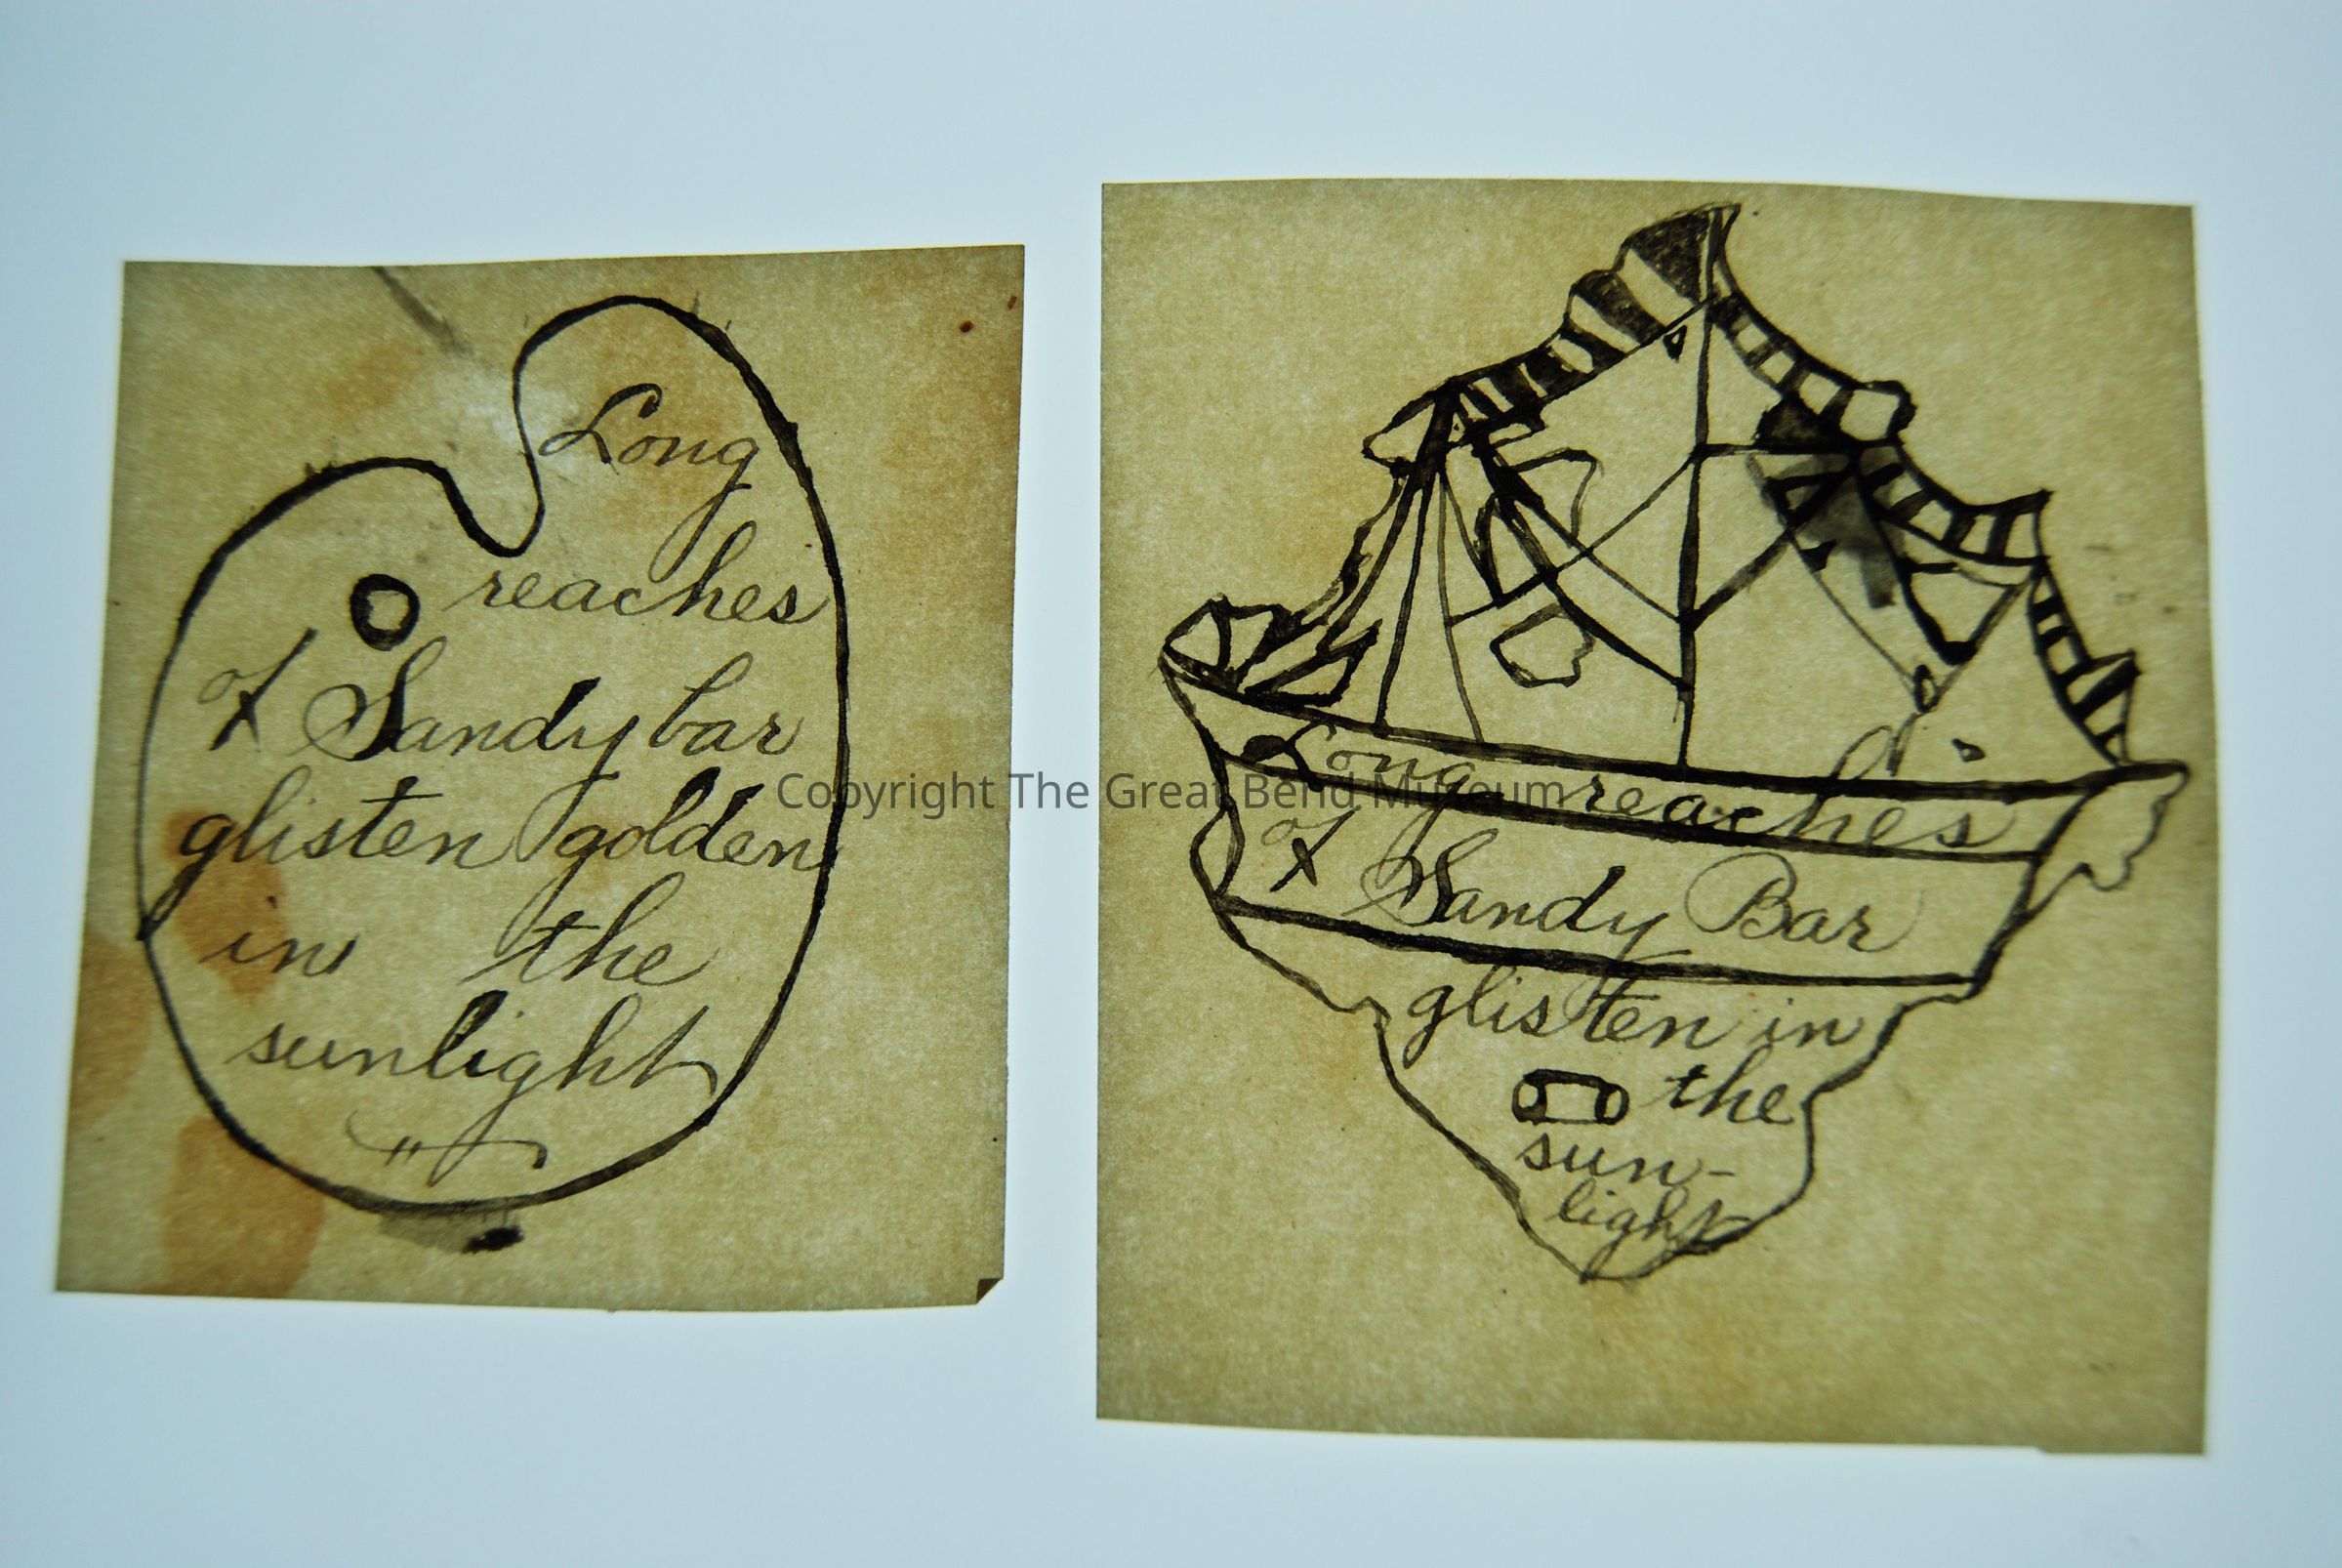 Long
reaches
of Sandy bar
glisten golden
in the
sunlight
Long reaches
of Sandy Bar
glisten in
the
sun-
light
Copyright The Great Bend Museum